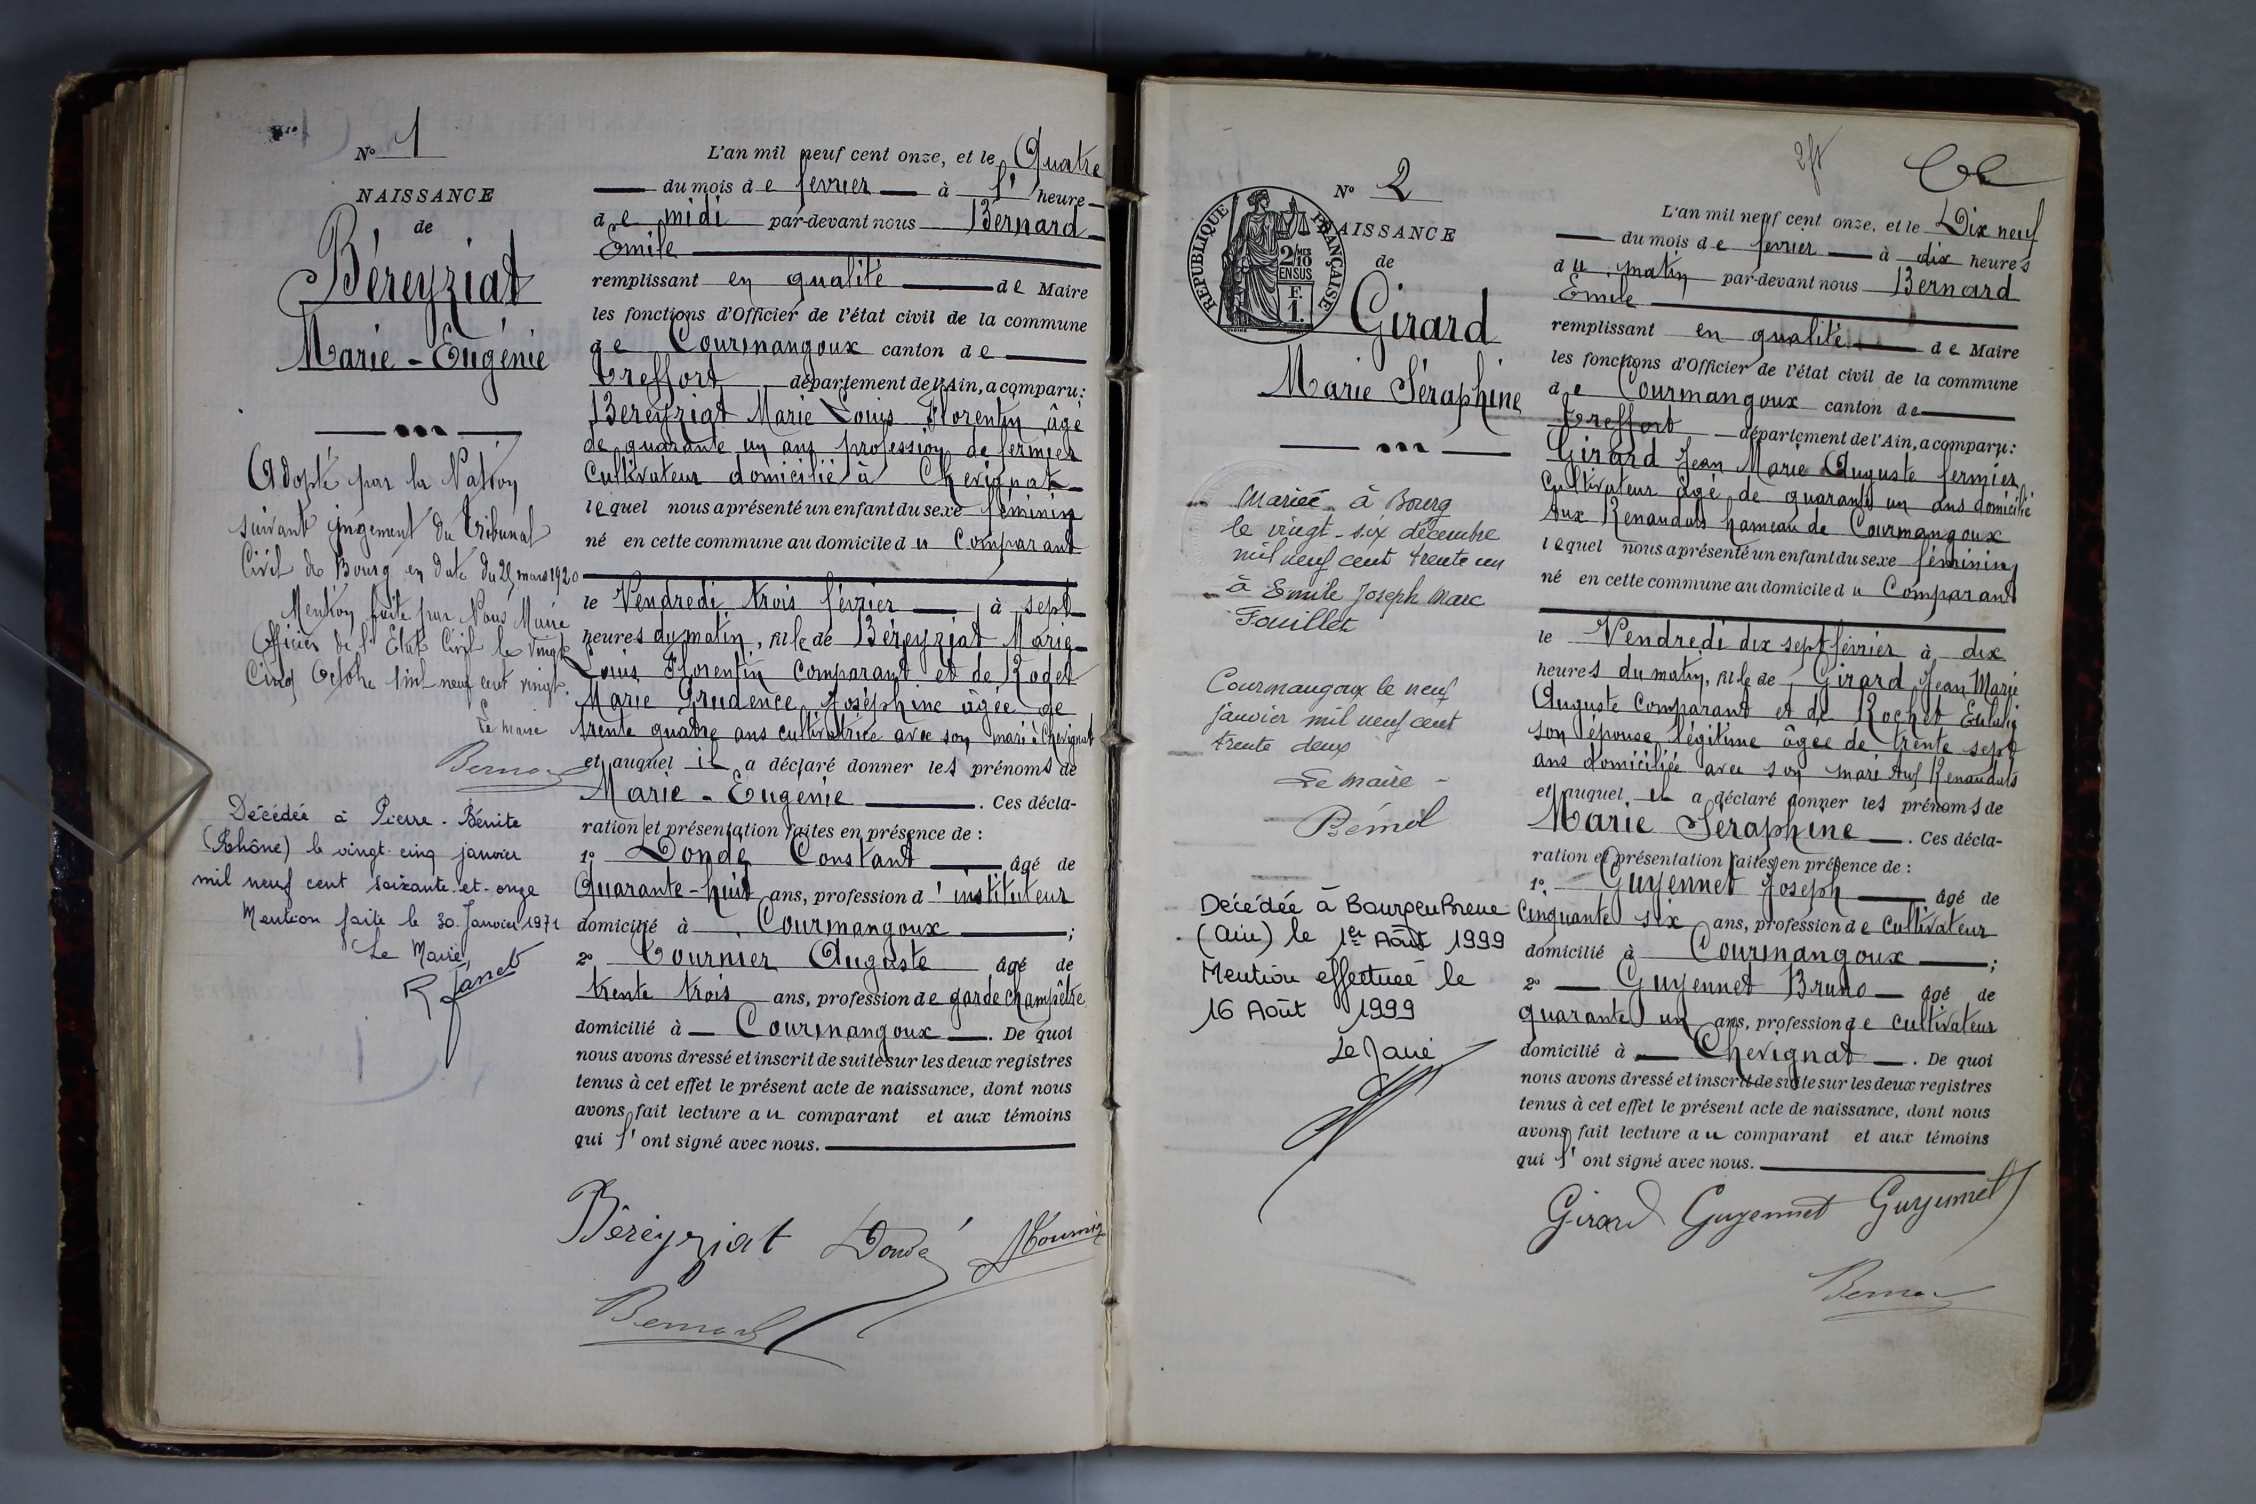 N° 1
NAISSANCE
de
Béreyziat
Marie-Eugénie
Adopté par la Nation
suivant jugement du Tribunal
Civil de Bourg en date du 25 mars 1920
Mention faite par Nous Maire
Officier de l'Etat Civil le vingt
Cinq Octobre mil neuf cent vingt.
Le maire
Bernard
Décédée à Pierre-Bénite
(Rhône) le vingt-cinq janvier
mil neuf cent soixante-et-onze
Mention faite le 30 Janvier 1971
Le Maire,
R Janet
L'an mil neuf cent onze, et le Quatre
du mois de fevrier à l' heure
de midi par-devant nous Bernard
Emile
remplissant en qualité de Maire
les fonctions d'Officier de l'état civil de la commune
de Courmangoux canton de
Treffort département de l'Ain, a comparu:
Bereyziat Marie Louis Florentin âgé
de quarante un ans profession de fermier
Cultivateur domicilié à Chevignat
lequel nous a présenté un enfant du sexe féminin
né en cette commune au domicile du Comparant
le Vendredi trois février, à sept
heures du matin, fille de Béreyziat Marie
Louis Florentin Comparant et de Rodet
Marie Prudence Joséphine âgée de
trente quatre ans cultivatrice avec son mari à Chevignat
et auquel il a déclaré donner les prénoms de
Marie-Eugénie. Ces décla-
ration et présentation faites en présence de :
1° Dondé Constant âgé de
Quarante-huit ans, profession d'instituteur
domicilié à Courmangoux ;
2° Tournier Auguste âgé de
trente trois ans, profession de garde champêtre
domicilié à Courmangoux. De quoi
nous avons dressé et inscrit de suite sur les deux registres
tenus à cet effet le présent acte de naissance, dont nous
avons fait lecture au comparant et aux témoins
qui l'ont signé avec nous.
Béréyziat Dondé ATournier
Bernard
N° 2
RÉPUBLIQUE FRANÇAISE
2/10 EN SUS
F. 1.
AISSANCE
de
Girard
Marie Séraphine
Mariée à Bourg
le vingt-six décembre
mil neuf cent trente un
à Emile Joseph Marc
Fouillet
Courmangoux le neuf
janvier mil neuf cent
trente deux
Le maire
Décédée à Bourg en Bresse
(Ain) le 1er Août 1999
Mention effectuée le
16 Août 1999
L'an mil neuf cent onze, et le Dix neuf
du mois de fevrier à dix heures
du matin par-devant nous Bernard
Emile
remplissant en qualité de Maire
les fonctions d'Officier de l'état civil de la commune
de Courmangoux canton de
Treffort département de l'Ain, a comparu:
Girard Jean Marie Auguste fermier
Cultivateur âgé de quarante un ans domicilié
Aux Renauduts hameau de Courmangoux
lequel nous a présenté un enfant du sexe féminin
né en cette commune au domicile du Comparant
le Vendredi dix sept février à dix
heures du matin, fille de Girard Jean Marie
Auguste Comparant et de Rochet Eulalie
son épouse légitime âgée de trente sept
ans domiciliée avec son mari Aux Renauduts
et auquel il a déclaré donner les prénoms de
Marie Séraphine. Ces décla-
ration et présentation faites en présence de :
1° Guyennet Joseph âgé de
Cinquante six ans, profession de cultivateur
domicilié à Courmangoux ;
2° Guyennet Bruno âgé de
quarante un ans, profession de cultivateur
domicilié à Chevignat. De quoi
nous avons dressé et inscrit de suite sur les deux registres
tenus à cet effet le présent acte de naissance, dont nous
avons fait lecture au comparant et aux témoins
qui l'ont signé avec nous.
Girard Guyennet Guyennet
Bernard